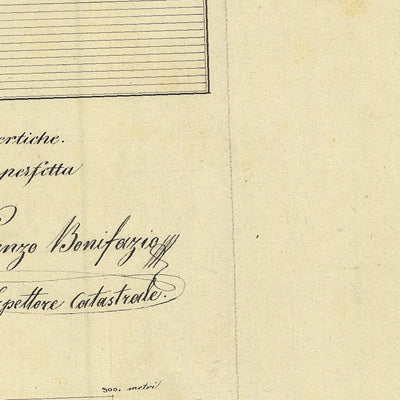 ertiche.
perfetta
enzo Bonifazio
spettore Catastrale.
300. metri